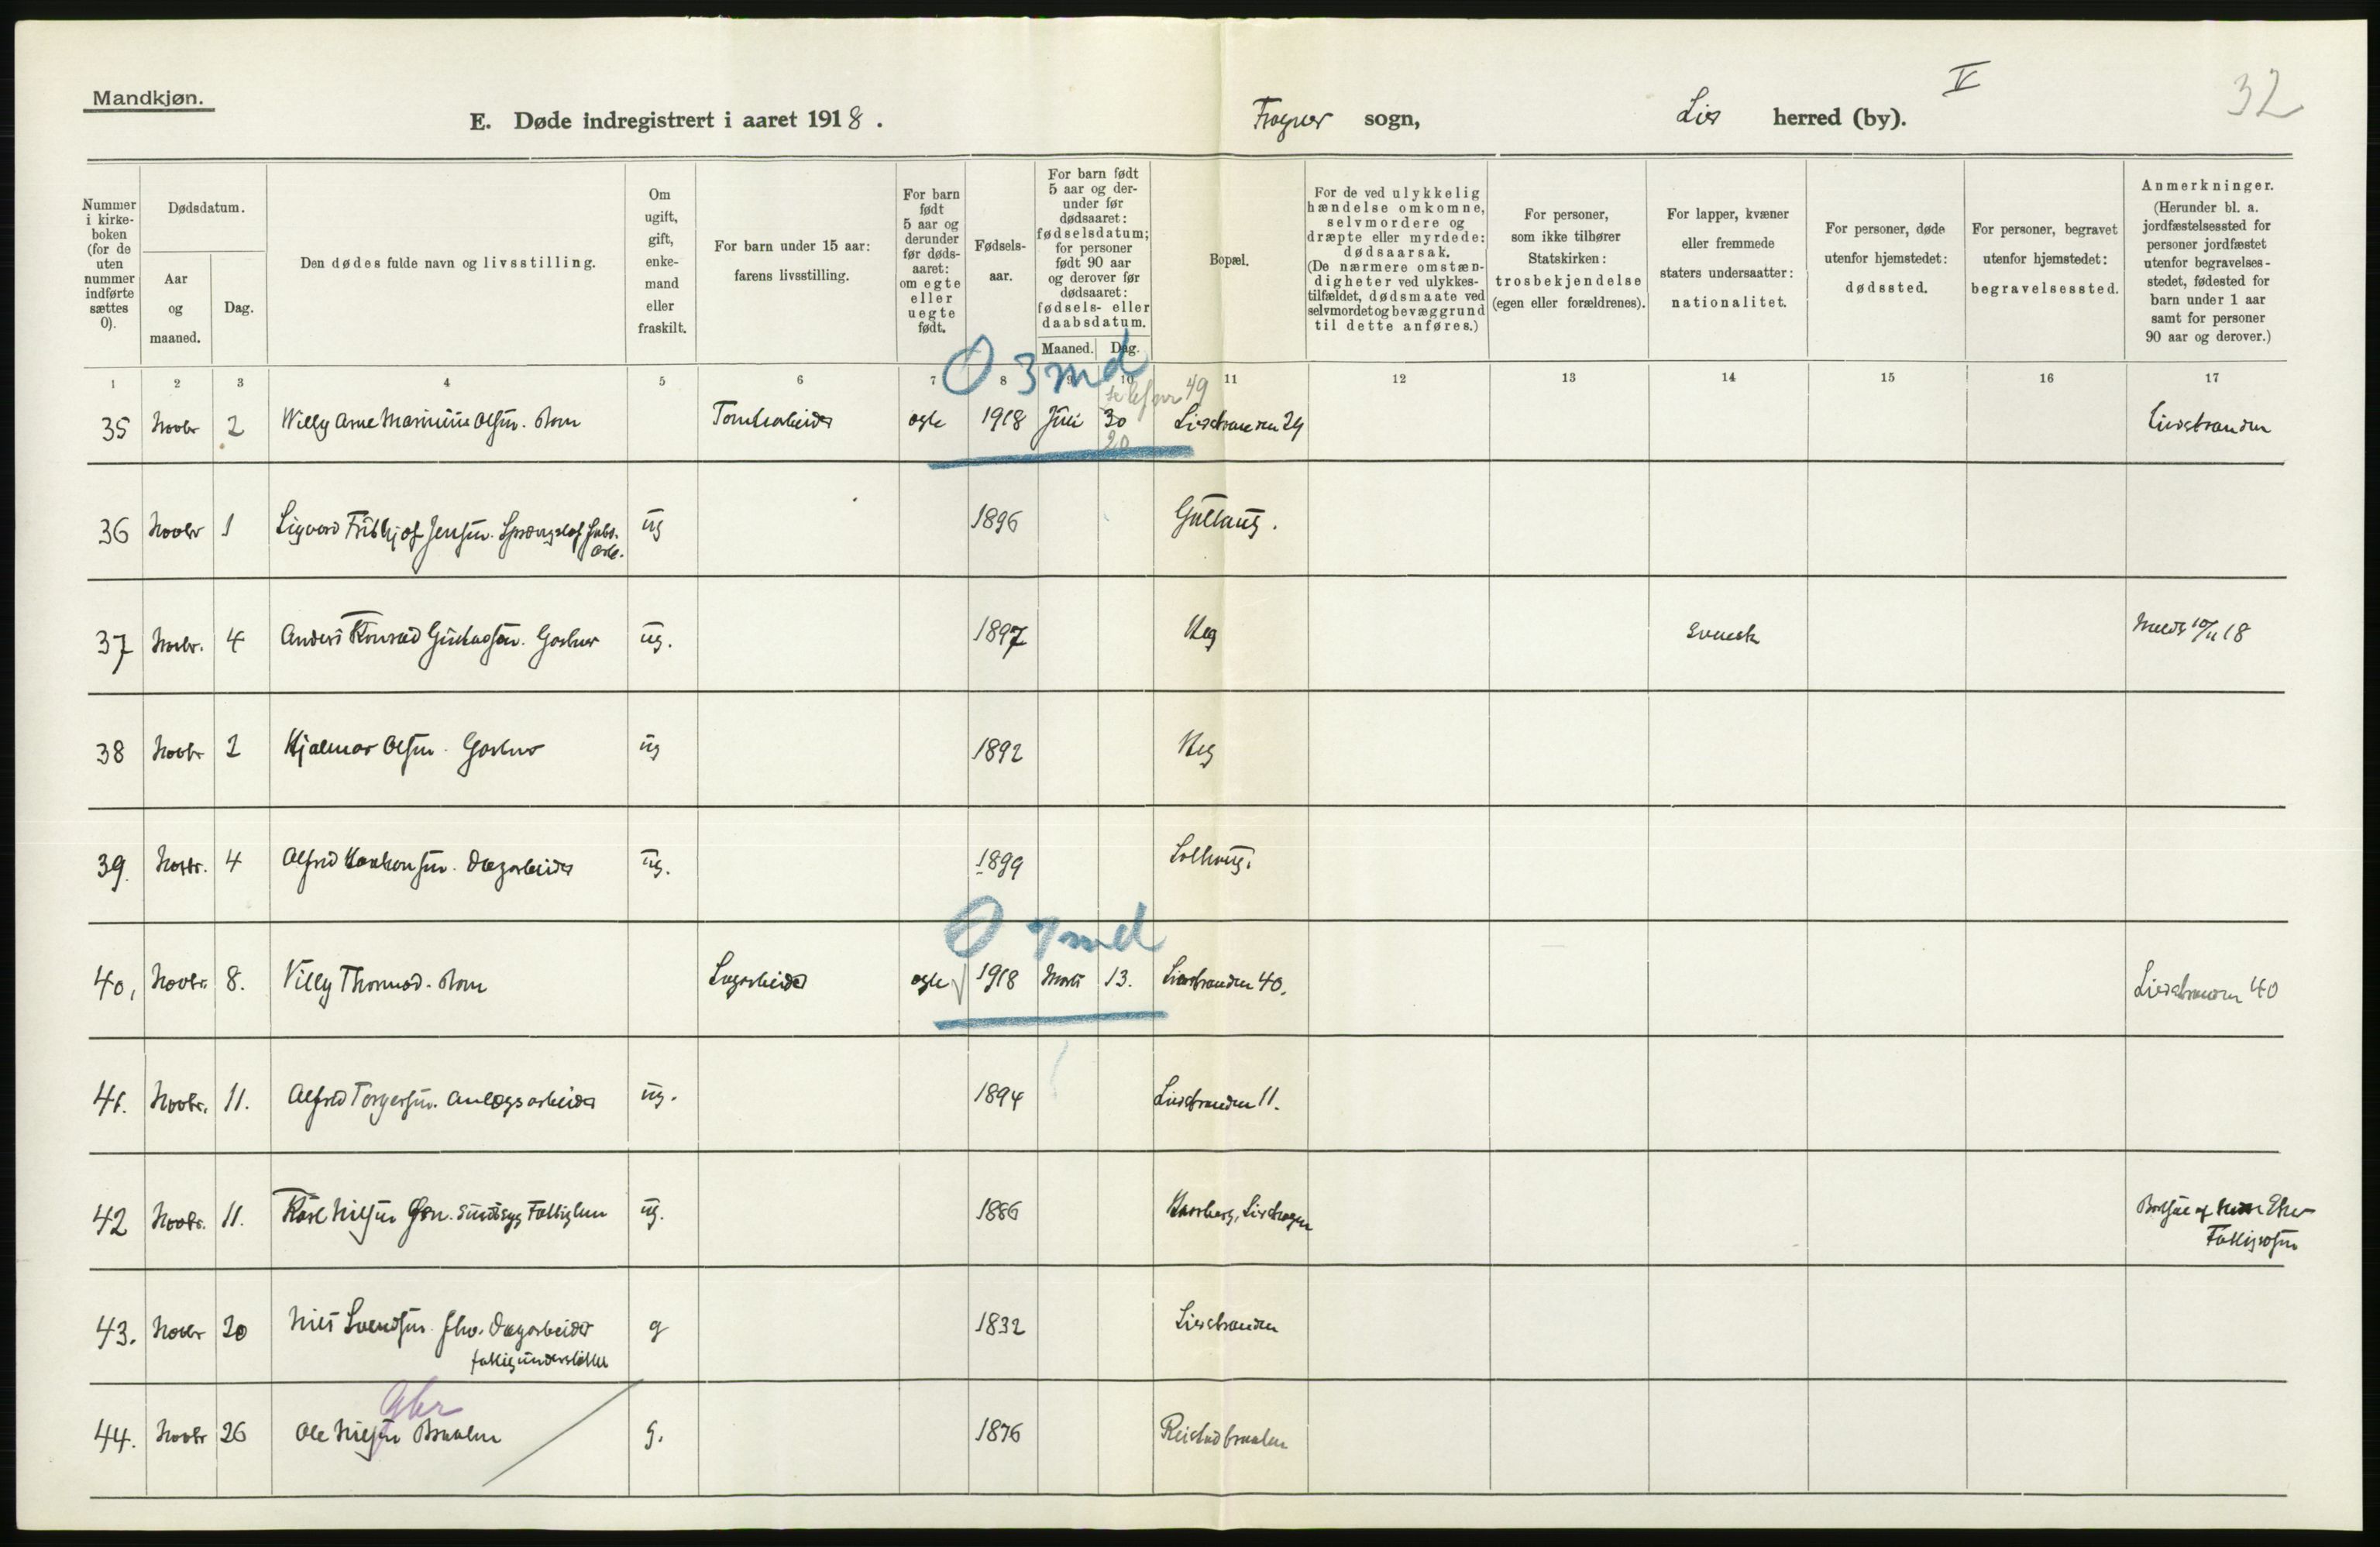 Mandkjøn.
E. Døde indregistrert i aaret 1918.
Frogner sogn,
Lier herred (by).
V
32
Nummer i kirke-boken (for de uten nummer indførte sættes 0).
Dødsdatum.
Aar og maaned.
Dag.
Den dødes fulde navn og livsstilling.
Om ugift, gift, enke-mand eller fraskilt.
For barn under 15 aar: farens livsstilling.
For barn født 5 aar og derunder før døds-aaret: om egte eller uegte født.
Fødsels-aar.
For barn født 5 aar og der-under før dødsaaret: fødselsdatum; for personer født 90 aar og derover før dødsaaret: fødsels- eller daabsdatum.
Maaned. Dag.
Bopæl.
For de ved ulykkelig hændelse omkomne, selvmordere og dræpte eller myrdede: dødsaarsak. (De nærmere omstæn-digheter ved ulykkes-tilfældet, dødsmaate ved selvmordet og bevæggrund til dette anføres.)
For personer, som ikke tilhører Statskirken: trosbekjendelse (egen eller forældrenes).
For lapper, kvæner eller fremmede staters undersaatter: nationalitet.
For personer, døde utenfor hjemstedet: dødssted.
For personer, begravet utenfor hjemstedet: begravelsessted.
Anmerkninger. (Herunder bl. a. jordfæstelsessted for personer jordfæstet utenfor begravelses-stedet, fødested for barn under 1 aar samt for personer 90 aar og derover.)
1 2 3 4 5 6 7 8 9 10 11 12 13 14 15 16 17
0 3 md
49
35 Novbr 2 Willy Arne Marinius Olsen. Barn Tomtearbeider egte 1918 Juli 30 Lierstranden 24 Lierstranden
20
36 Novbr 1 Sigvard Fridthjof Jensen. Sprængstof fabr. arb. ug 1896 Gullaug.
37 Novbr. 4 Anders Konrad Gustafsen. Gartner ug. 1897 Heg svensk 10/11 18
38 Novbr 2 Hjalmar Olsen. Gartner ug 1892 Heg
39. Novbr. 4 Alfred Haakensen. Dagarbeider ug. 1899 Solhaug.
0 7 md
40, Novbr. 8. Villy Thormod. Barn Sagarbeider egte 1918 Marts 13. Lierstranden 40. Lierstranden 40
41. Novbr. 11. Alfred Torgersen. Anlægsarbeider ug. 1894 Lierstranden 11.
42 Novbr. 11. Karl Nilsen Øen. Sindssyg Fattiglem ug. 1886
43. Novbr 20 Nils Svendsen. fhv. Dagarbeider g 1832 Lierstranden
fattigunderstøttet
gbr
44. Novbr 26 Ole Nilsen Braaten g. 1876 Reistadbraaten